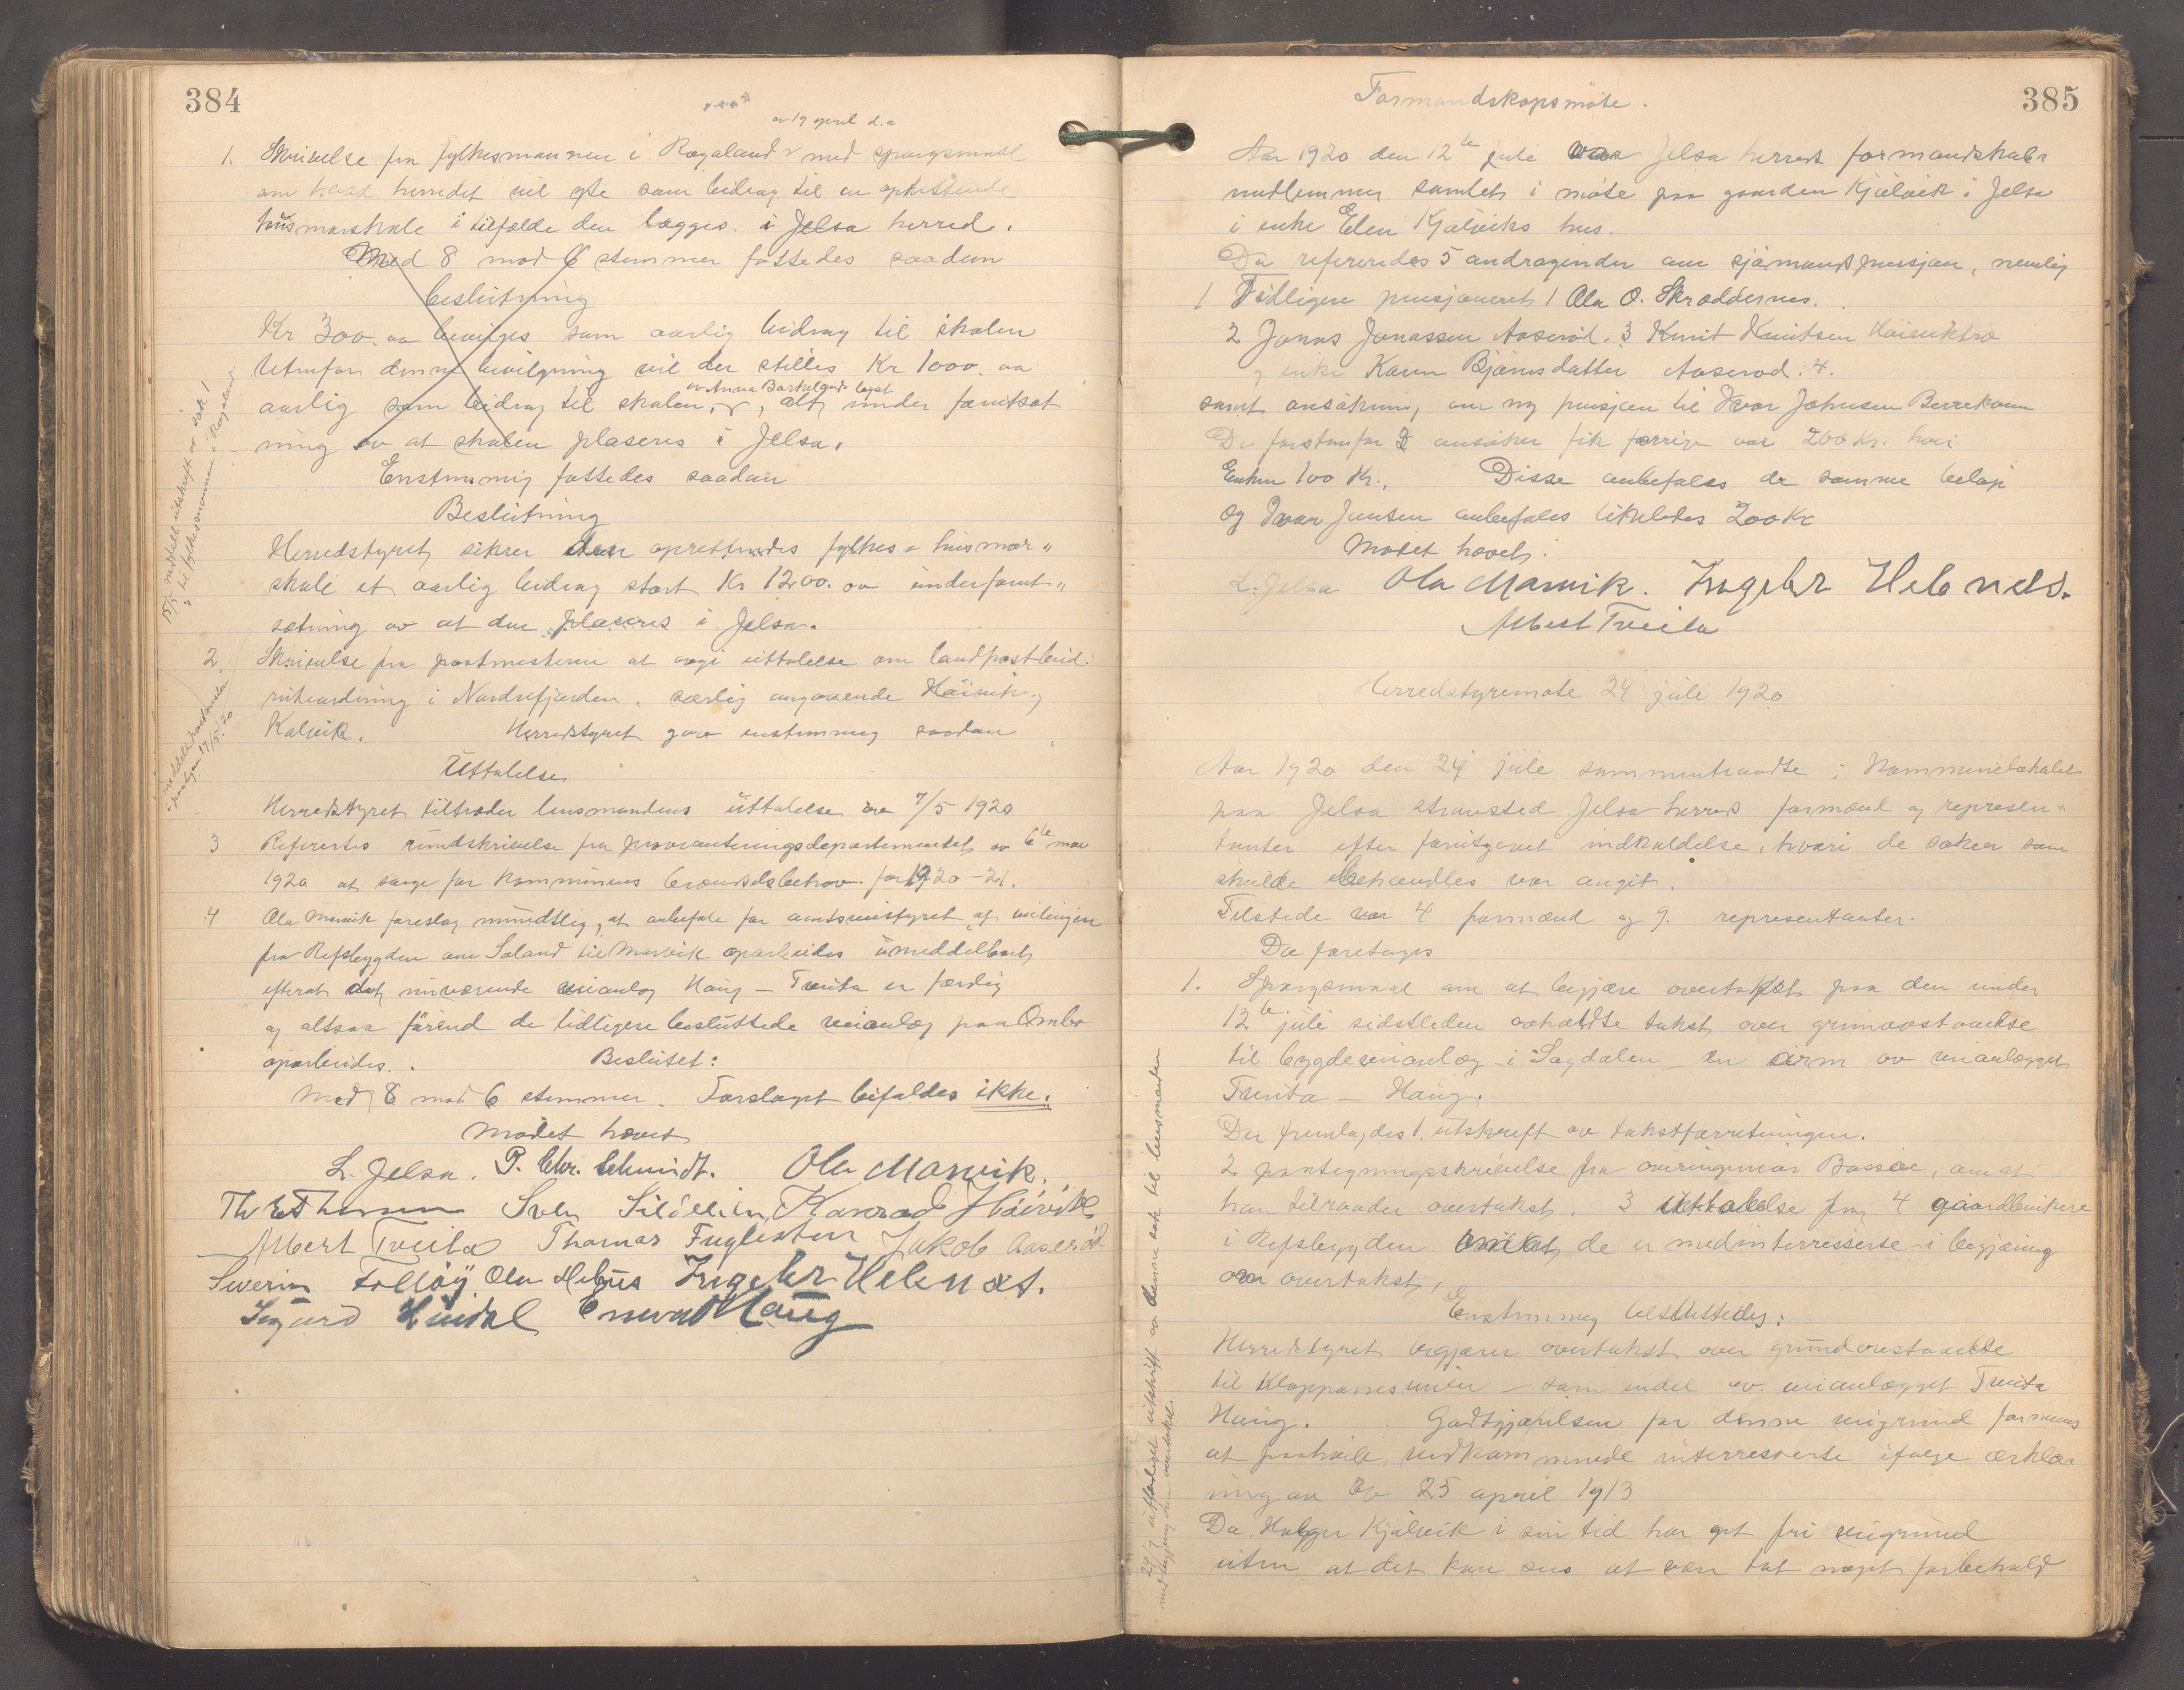 384
av 19 april d.a
1. Skrivelse fra fylkesmannen i Rogaland med spørgsmaal
om hvad herredet vil yte som bidrag til en oprettende
husmorskole i tilfælde den lægges i Jelsa herred.
Med 8 mod 6 stemmer fattedes saadan
beslutning
Kr 300.00 bevilges som aarlig bidrag til skolen
Utenfor denne bevilgning vil der stilles Kr 1000.00
av Anna Barkelgards legat
aarlig som bidrag til skolen, alt under forutsæt
ning av at skolen plaseres i Jelsa.
Enstemmig fattedes saadan
Beslutning
Herredstyret sikrer den oprettendes fylkes- husmor"
skole et aarlig bidrag stort Kr 1200.00 under forut"
sætning av at den plaseres i Jelsa.
15/5 meddelt utskrift av sak 1
til fylkesmannen i Rogaland
2. Skrivelse fra postmesteren at avgi uttalelse om landpostbud
ruteordning i Nordrefjorden, særlig angaaende Höivik og
Kalvik. Herredstyret gav enstemmig saadan
Uttalelse
Herredstyret tiltræder lensmandens uttalelse av 7/5 1920
meddelt postmesteren
17/5.20
3 Refertes rundskrivelse fra provianteringsdepartementet av 6te mai
1920 at sørge for kommunens brændselsbehov for 1920-21.
4 Ola Marvik foreslog mundtlig, at anbefale for amtsveistyret at veilinjen
fra Refsbygden om Saland til Marvik oparbeides umiddelbart
efterat det nuværende veianlæg Haug - Tveita er færdig
og altsaa förend de tidligere besluttede veianlæg paa Ombo
oparbeides. Beslutet:
Med 8 mod 6 stemmer. Forslaget bifaldes ikke.
Mødet hævet
L. Jelsa. P. Chr. Schmidt. Ola Marvik.
Th E Thomsen Sven Konrad Höivik
Albert Tveita Thomas Fuglestein Jakob Aaseröd
Severin Folköy Ola Hebnes Ingebr Hebnes.
Sigurd Hindal Haug
385
Formandskapsmöte.
Aar 1920 den 12te juli var Jelsa herreds formandskabs
medlemmer samlet i möte paa gaarden Kjölvik i Jelsa
i enke Elen Kjölviks hus.
Da refereredes 5 andragender om sjömandspensjon, nemlig
1 Tidligere pensjoneret 1 Ola O. Skræddernes.
2 Jonas Jonassen Aaseröd. 3 Knut Knutsen Höiviktræ
og enke Karen Björnsdatter Aaseröd. 4.
samt ansökning om ny pensjon til Ivar Johnsen Berrekvam
De forstenfor 3 ansöker fik forrige aar 200 Kr. hver
Enken 100 Kr., Disse anbefales de samme beløp
og Ivar Jensen anbefales likeledes 200 Kr
Mødet hævet.
L. Jelsa Ola Marvik. Ingebr Hebnes.
Albert Tveita
Herredstyremøte 24 juli 1920
Aar 1920 den 24 juli sammentraadte i kommunelokalet
paa Jelsa strandsted Jelsa herreds formænd og represen"
tanter efter forutgaaet indkaldelse, hvori de saker som
skulde behandles var angit.
Tilstede var 4 formænd og 9. representanter.
Da foretages
1. Spørgsmaal om at begjære overtakst paa den under
12te juli sidstleden avholdte takst over grunavstaaelse
til bygdeveianlæg i Sagdalen en arm av veianlægget
Tveita - Haug.
Der fremlagdes 1. utskrift av takstforretningen.
2 paategningsskrivelse fra overingeniör Bassøe, om at
han tilraader overtakst. 3 uttalelse fra 4 gaardbrukere
i Refsbygden om at de er medinterresserte i begjæring
om overtakst,
Enstemmig besluttedes:
Herredstyret begjærer overtakst over grundavstaaelse
til Kloppanesveien - som indel av veianlægget Tveita
Haug. Godtgjørelsen for denne veigrund formenes
at paahvile vedkommende interresserte ifølge erklæ
ringen av 25 april 1913
Da Holger Kjölvik i sin tid har get fri veigrund
uten at det kan sees at være tat noget forbehold
24/7 utfærdiget utskrift av denne sak til lensmanden
med begjæring om overtakst.